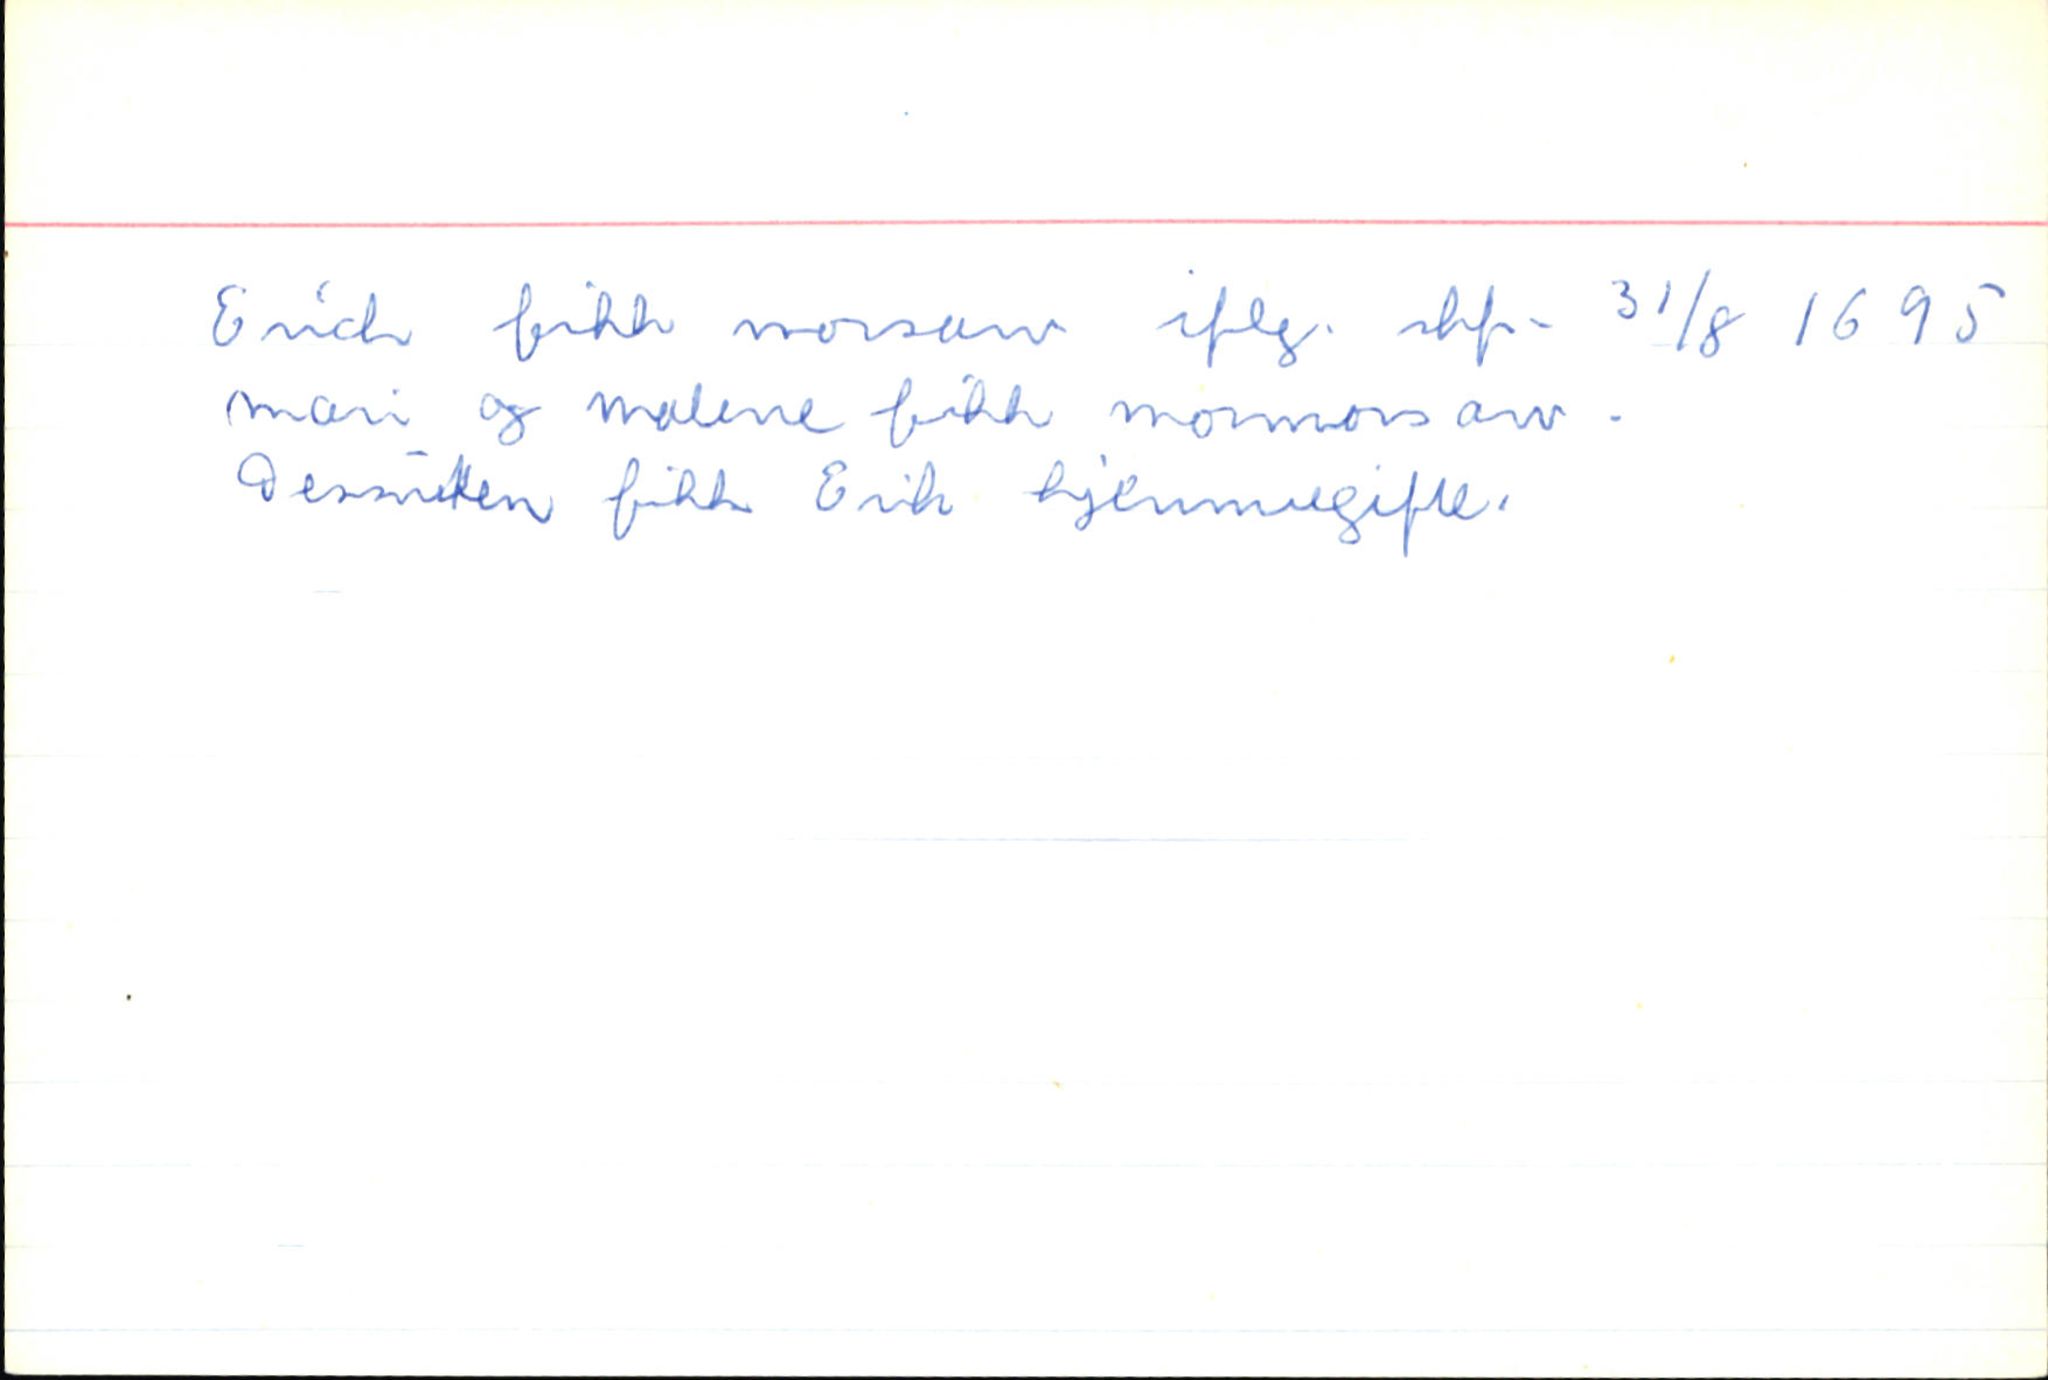 Erich fikk morsarv iflg. skf. 31/8 1695
Mari og Malene fikk mormorsarv.
Dessuten fikk Erik hjemmegifte.